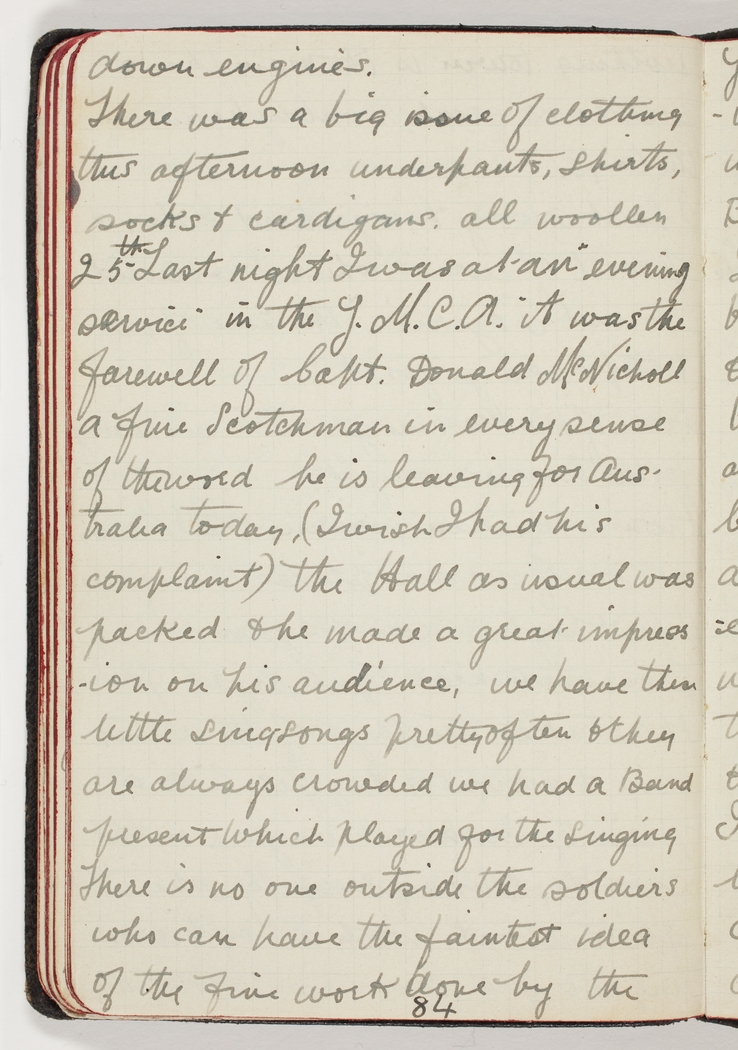 down engines.
There was a big issue of clothing
this afternoon underpants, shirts,
socks & cardigans. all woollen
25th Last night I was at an "evening
service" in the Y.M.C.A. it was the
farewell of Capt. Donald McNicholl
a fine Scotchman in every sense
of the word he is leaving for Aus-
tralia today, (I wish I had his
complaint) the Hall as usual was
packed & he made a great impress
-ion on his audience, we have then
little singsongs pretty often & they
are always crowded we had a Band
present which played for the singing
There is no one outside the soldiers
who can have the faintest idea
of the fine work done by the
84